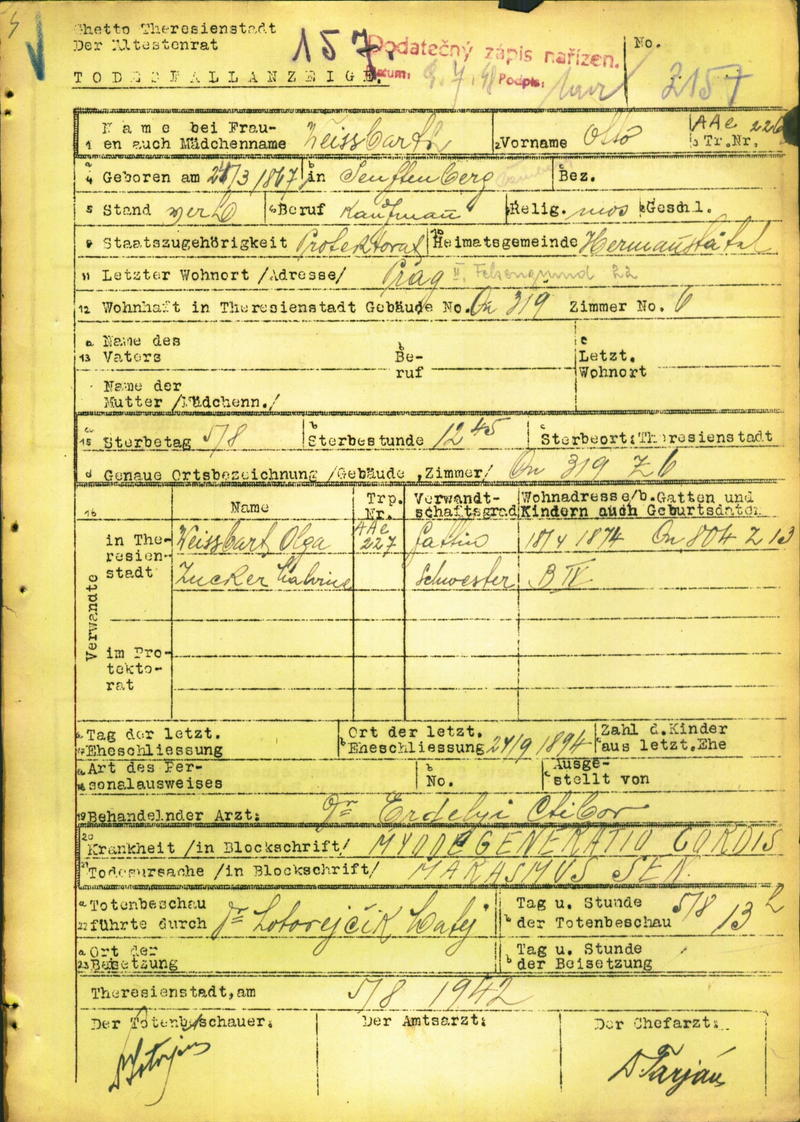 Ghetto Theresienstadt
Der Ältestenrat
157. Dodatečný zápis nařízen.
No.
TODESFALLANZEIGE. Datum: 9.7.48 Podpis:
2157
1 Name bei Frau-
en auch Mädchenname Weissbarth 2 Vorname Otto 3 Tr.Nr. AAe 226
a 4 Geboren am 25/3 1867 b in Senftenberg c Bez.
5 Stand verh 6 Beruf Kaufmann 7 Relig. mos 8 Geschl.
9 Staatszugehörigkeit Protektorat 10 Heimatsgemeinde Hermanstätel
11 Letzter Wohnort /Adresse/ Prag II, Felsengrund 22
12 Wohnhaft in Theresienstadt Gebäude No. Qn 319 Zimmer No. 6
a Name des
13 Vaters
b Be-
ruf
c Letzt.
Wohnort
Name der
Mutter /Mädchenn./
a 15 Sterbetag 5/8 b Sterbestunde 12 45 c Sterbeort: Theresienstadt
d Genaue Ortsbezeichnung /Gebäude, Zimmer/ Qn 319 Z 6
16 Name Trp. Nr. Verwandt-
schaftsgrad Wohnadresse/b.Gatten und
Kindern auch Geburtsdaten
Verwandte
in The-
resien-
stadt
Weissbart Olga AAe 227 Gattin 18/4 1874 Qn 804 Z 13
Zucker Schwester B IV
im Pro-
tekto-
rat
a Tag der letzt.
Eheschliessung
b Ort der letzt.
Eheschliessung 24/9 1894
c Zahl d.Kinder
aus letzt.Ehe
a Art des Per-
18 sonalausweises
b No.
c Ausge-
stellt von
19 Behandelnder Arzt: Dr Erdelyi Ctibor
20 Krankheit /in Blockschrift/ MYODEGENERATIO CORDIS
21 Todesursache /in Blockschrift/ MARASMUS SEN.
a Totenbeschau
22 führte durch Dr
b Tag u. Stunde
der Totenbeschau 5/8 13 h
a Ort der
23 Beisetzung
b Tag u. Stunde
der Beisetzung
Theresienstadt, am 5/8 1942
Der Totenbeschauer: Der Amtsarzt: Der Chefarzt:
Dr Tarján